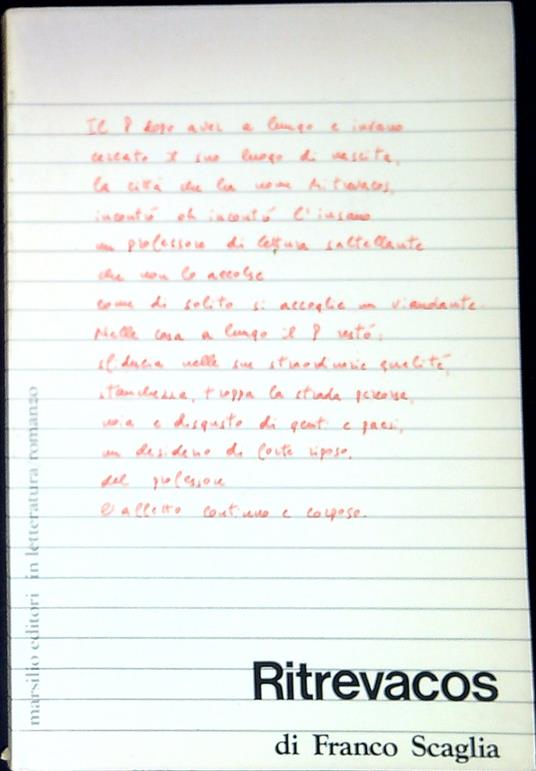 Il P dopo aver a lungo e insano
cercato il suo luogo di nascita,
la città che ha nome Ritrevacos,
incontrò oh incontrò l'insano
un professore di lettura saltellante
che non lo accolse
come di solito si accoglie un viandante.
Nella casa a lungo il P restò:
sfiducia nelle sue straordinarie qualità,
stanchezza, troppa la strada percorsa,
noia e disgusto di genti e paesi,
un desiderio di forte riposo,
del professore
l'affetto continuo e corposo.
marsilio editori in letteratura romanzo
Ritrevacos
di Franco Scaglia